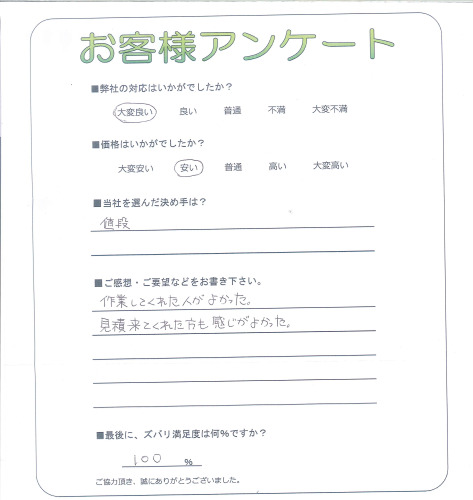 お客様アンケート
■弊社の対応はいかがでしたか？
大変良い 良い 普通 不満 大変不満
■価格はいかがでしたか？
大変安い 安い 普通 高い 大変高い
■当社を選んだ決め手は？
値段
■ご感想・ご要望などをお書き下さい。
作業してくれた人がよかった。
見積来てくれた方も感じがよかった。
■最後に、ズバリ満足度は何%ですか？
100 %
ご協力頂き、誠にありがとうございました。